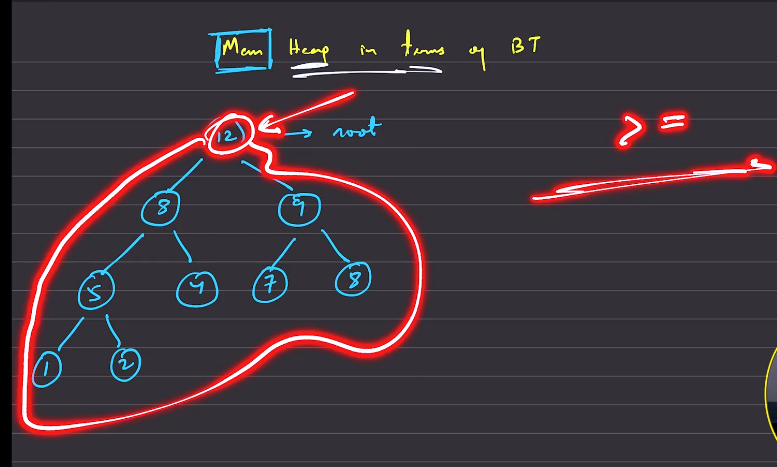 Max Heap in terms of BT
12 → root
> =
8 9
5 4 7 8
1 2